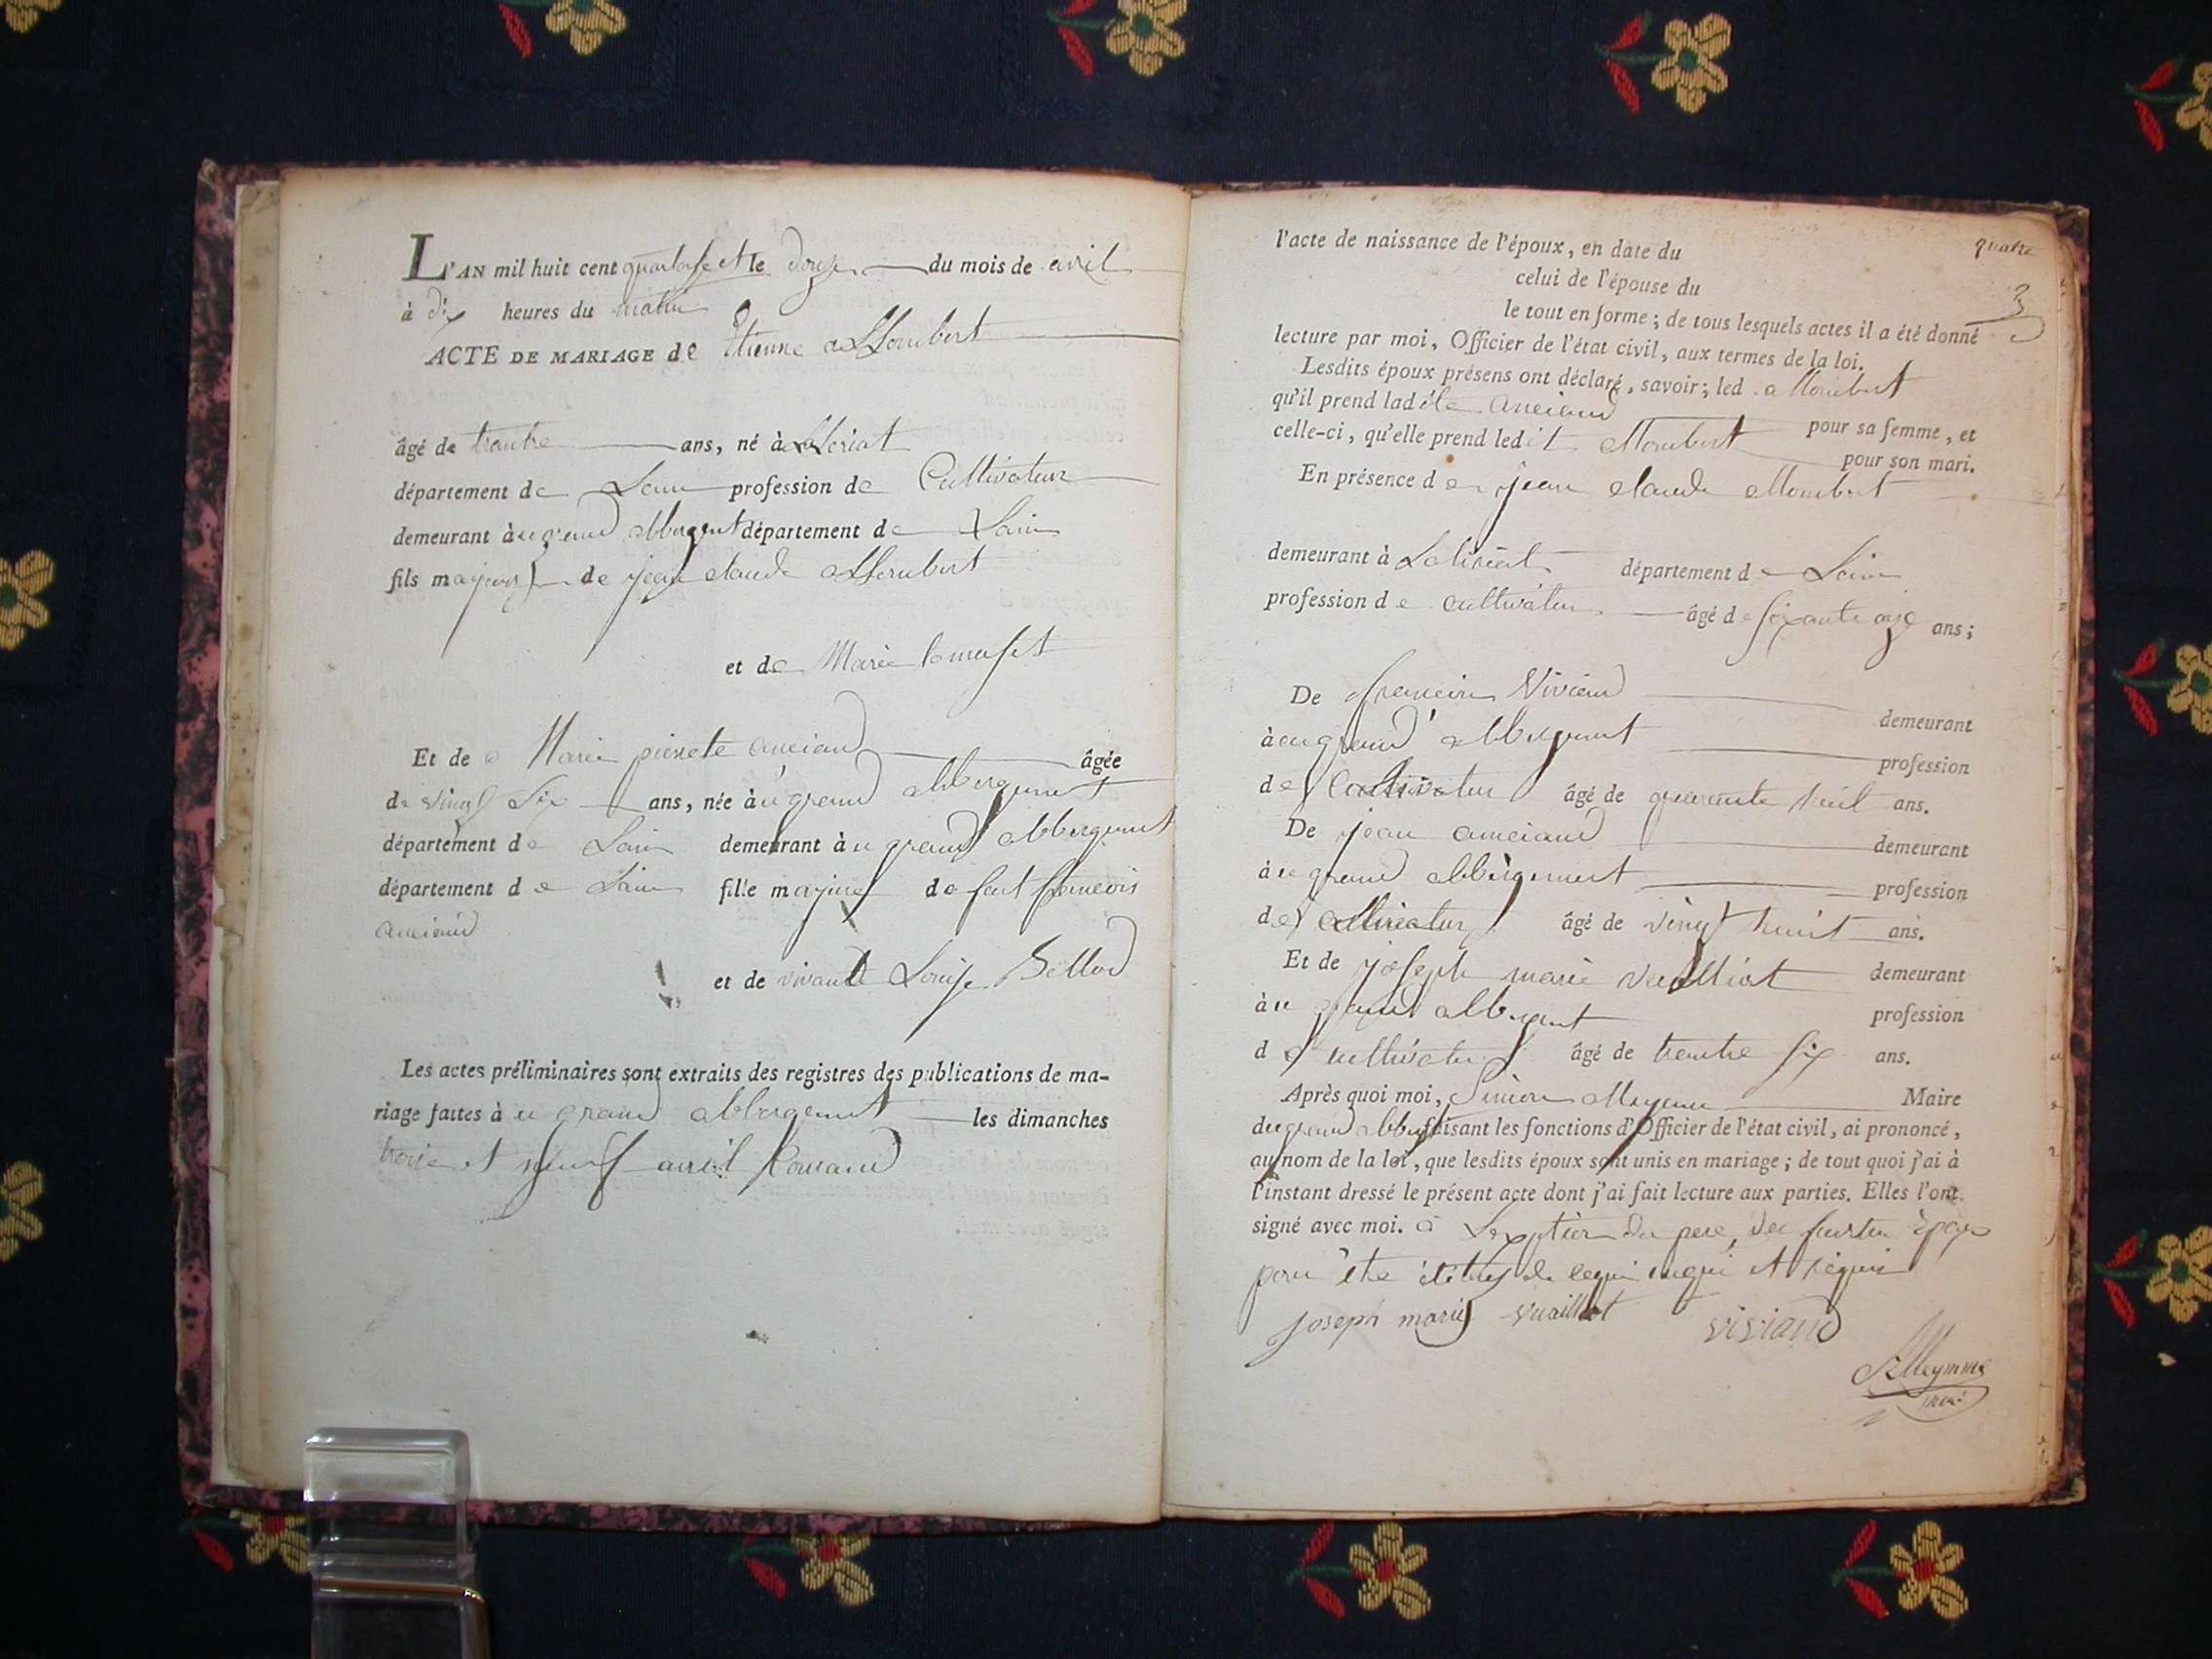 L'AN mil huit cent quartorse et le douze du mois de avril
à dix heures du matin
ACTE DE MARIAGE de Etienne
âgé de trantre ans, né à
département de Lain profession de Cultivateur
demeurant à u grand abbergent département de Lain
fils majeur de jean claude
et de Marie
Et de Marie pierrete anciand âgée
de vingt six ans, née à u grand abbergement
département de Lain demeurant à u grand abbergement
département de Lain fille majeure de feut francois
anciand
et de vivante Louise Billod
Les actes préliminaires sont extraits des registres des publications de ma-
riage faites à u grand abbergement les dimanches
trois et avril
quatre
l'acte de naissance de l'époux, en date du
celui de l'épouse du
le tout en forme ; de tous lesquels actes il a été donné
lecture par moi, Officier de l'état civil, aux termes de la loi.
Lesdits époux présens ont déclaré, savoir ; led.
qu'il prend ladite anciand pour sa femme, et
celle-ci, qu'elle prend ledit pour son mari.
En présence de jean claude
demeurant à département de Lain
profession de cultivateur âgé de ans ;
De Viviand demeurant
à au grand abbergement profession
de Cultivateur âgé de quarante huit ans.
De jean anciand demeurant
à u grand abbergement profession
de cultivateur âgé de vingt huit ans.
Et de joseph marie vuailliat demeurant
à u grand abbergent profession
de cultivateur âgé de trantre six ans.
Après quoi moi, Maire
du grand faisant les fonctions d'Officier de l'état civil, ai prononcé,
au nom de la loi, que lesdits époux sont unis en mariage ; de tout quoi j'ai à
l'instant dressé le présent acte dont j'ai fait lecture aux parties. Elles l'ont
signé avec moi. à Lexption du pere
joseph marie vuailliat viviand